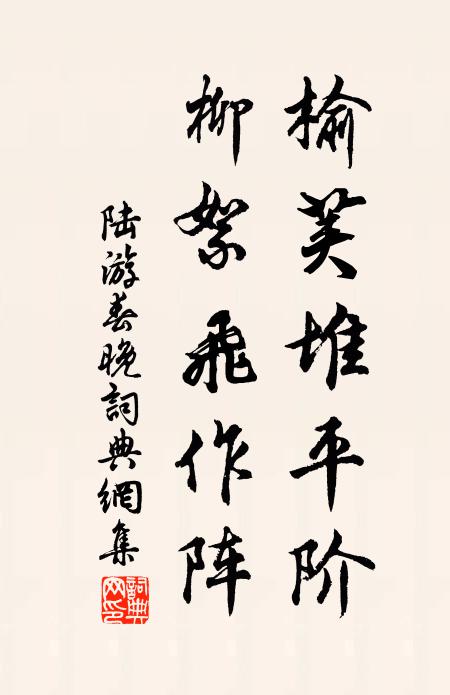 榆荚堆平阶
柳絮飞作阵
陆游春晚詞典網集
詞典网印